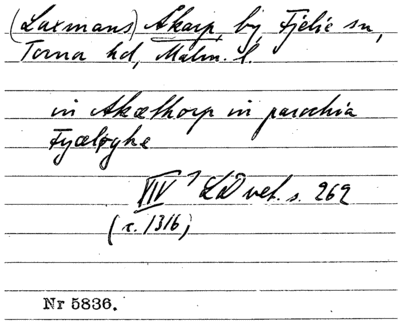 (Laxmans) Åkarp, by, Fjelie sn,
Torna hd, Malm. l.
in Akæthorp in parochia
Fyæløghe
XIV LD vet. s. 262
(c. 1316)
Nr 5836.